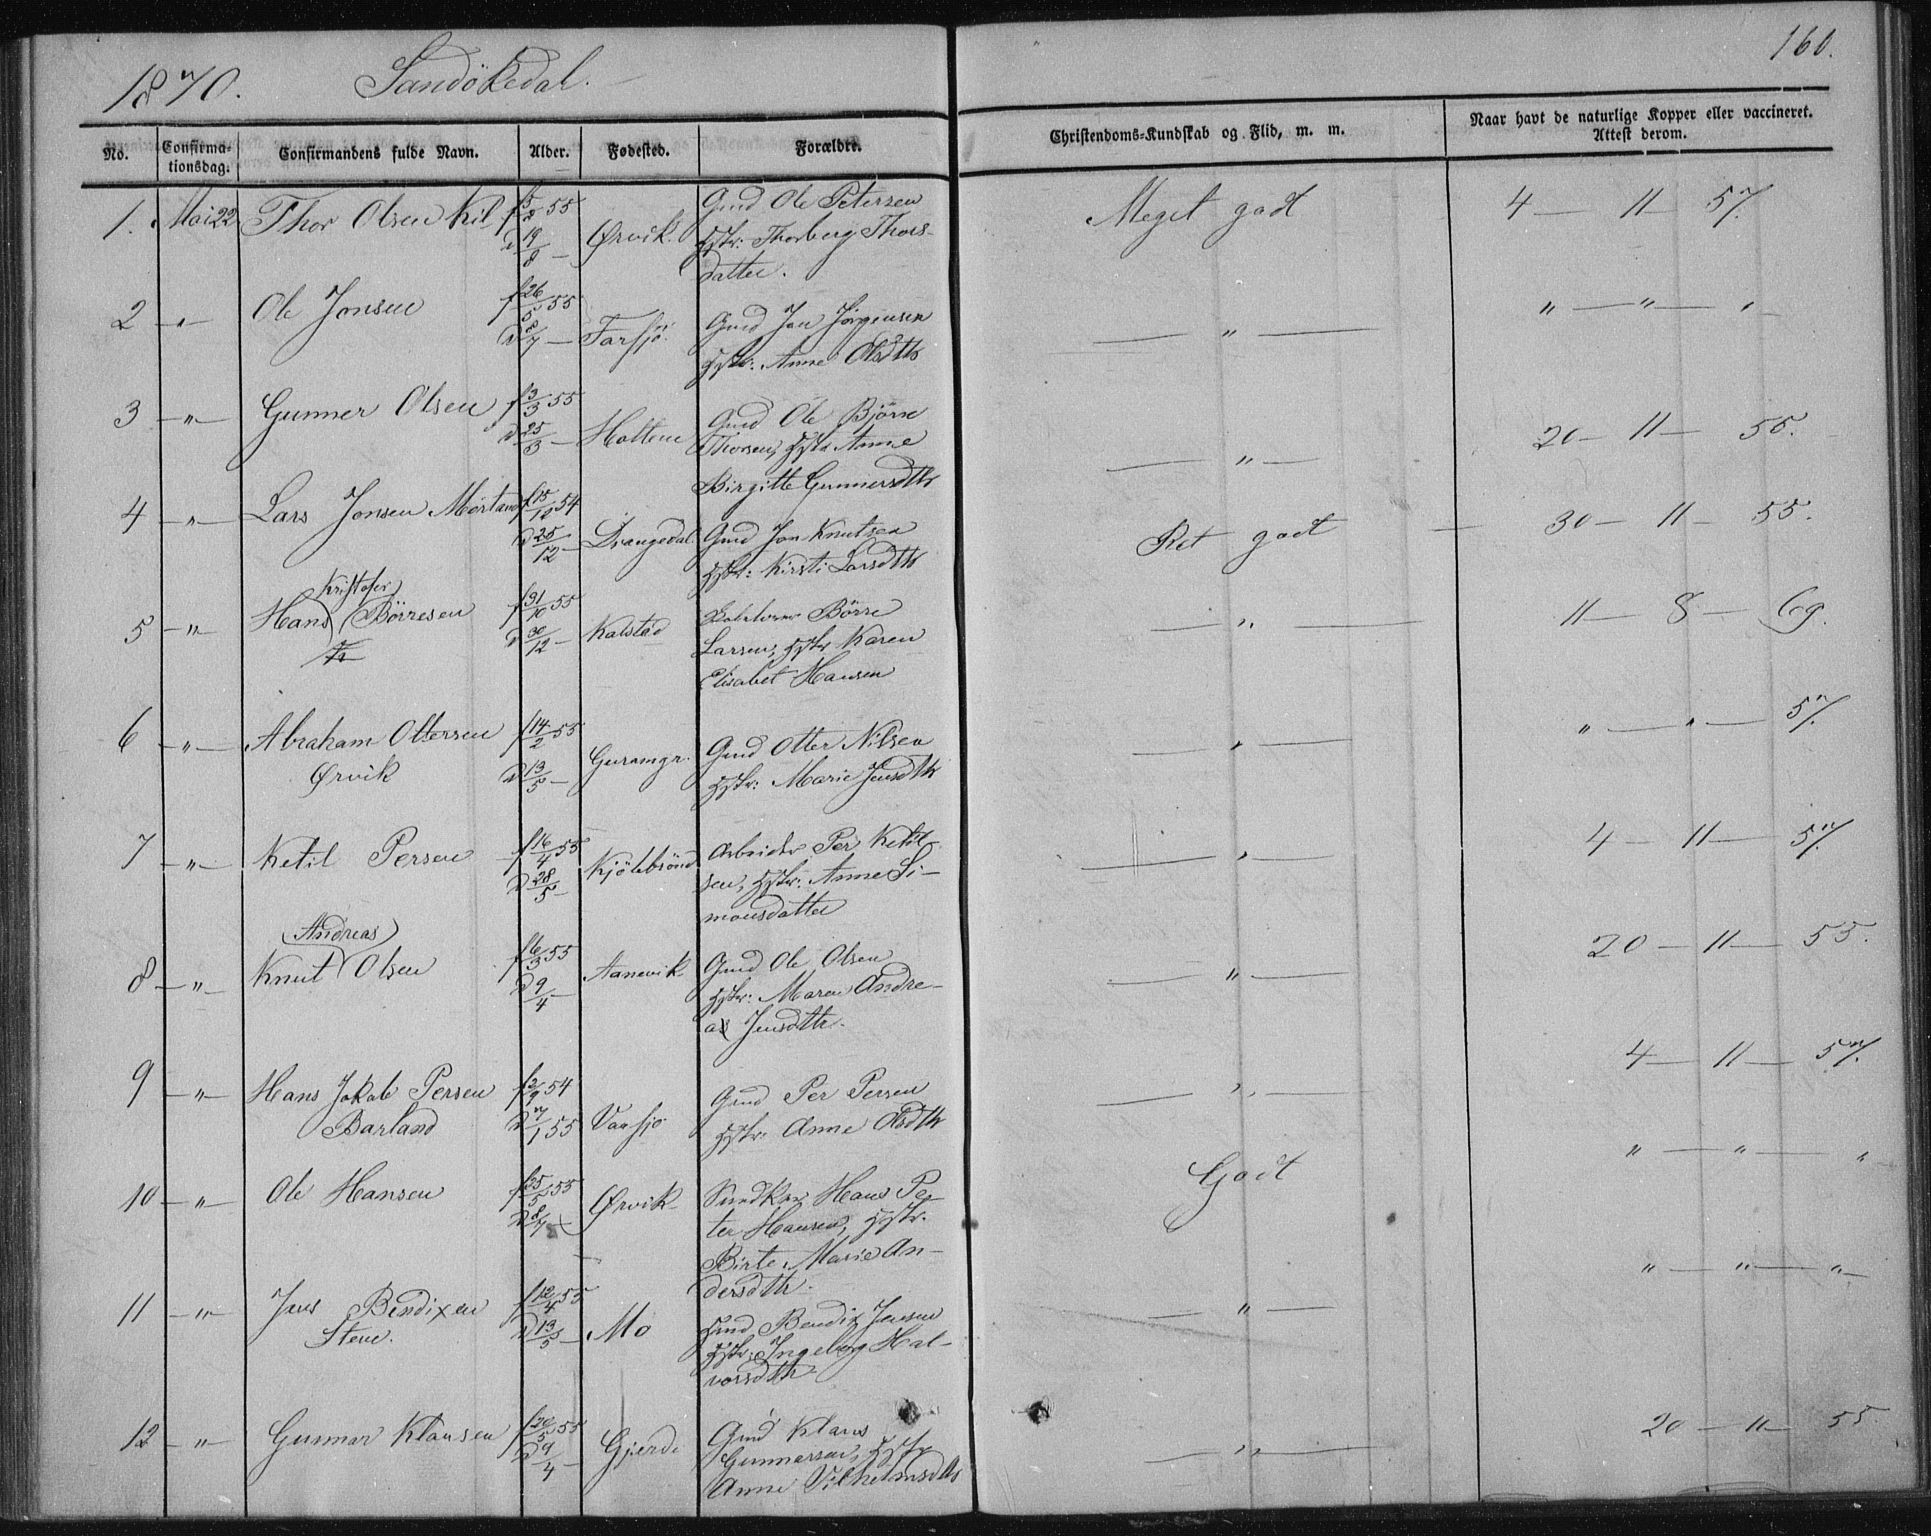 1870. Sandökedal.
160.
No.
Confirma-
tionsdag.
Confirmandens fulde Navn.
Alder.
Fødested.
Forældre.
Christendoms-Kundskab og Flid, m. m.
Naar havt de naturlige Kopper eller vaccineret.
Attest derom.
1. Mai 22 Thor Olsen Kil f 5/8 55 Gmd Ole Petersen Meget godt 4 — 11 — 57.
D 19/8 — Ørvik. Hstr: Thorberg Thors-
datter.
2 — " — Ole Jonsen f 26/5 55 — " — " — " — "
D 8/7 — Tarsjø. Gmd Jon Jørgensen
Hstr: Anne Olsdtr
3 — " — Gunner Olsen f 3/3 55 Gmd Ole Bjørn — " — 20 — 11 — 55.
D 25/3 — Holtene Thorsen, Hstr Anne
Birgitte Gunnersdtr
4 — " — Lars Jonsen Mørland f 15/10 54 Ret godt 30 — 11 — 55.
D 25/12 — Drangedal Gmd Jon Knutsen
Hstr: Kirsti Larsdtr
Kristofer
5 — " — Hans Börresen f 31/10 55 Börre — " — 11 — 8 — 69.
D 30/12 — Kalstad Larsen, Hstr Karen
Elisabet Hansen
6 — " — Abraham Ottersen f 14/2 55 Gmd Otter Nilsen — " — " — " — 57.
Ørvik D 13/5 — Guromgr. Hstr: Marie Jensdtr
7 — " — Ketil Persen f 16/4 55 Arbeider Per Ketil- — " — 4 — 11 — 57.
D 28/5 — Kjölebrönd sen, Hstr: Anne Si-
monsdatter
Andreas
8 — " — Knut Olsen f 6/3 55 Aanevik Gmd Ole Olsen — " — 20 — 11 — 55.
D 9/4 — Hstr: Maren Andre-
as Jensdtr.
9 — " — Hans Jakob Persen f 2/9 54 Gmd Per Persen — " — 4 — 11 — 57.
Barland D 7/1 55 Vaasjø Hstr: Anne Olsdtr
10 — " — Ole Hansen f 25/5 55 Ørvik Hans Pe- Godt " — " — "
D 8/7 ter Hansen, Hstr:
Birte Marie An-
dersdtr.
11 — " — Jens Bendixen f 12/4 55 — " — " — " — "
Stene. D 13/5 — Mo Hmd Bendix Jensen
Hstr: Ingeborg Hal-
vorsdtr
12 — " — Gunnar Klausen f 20/5 55 Gmd Klaus — " — 20 — 11 — 55
D 9/4 — Gjerde Gunnarsen, Hstr
Anne Vilhelmsdtr